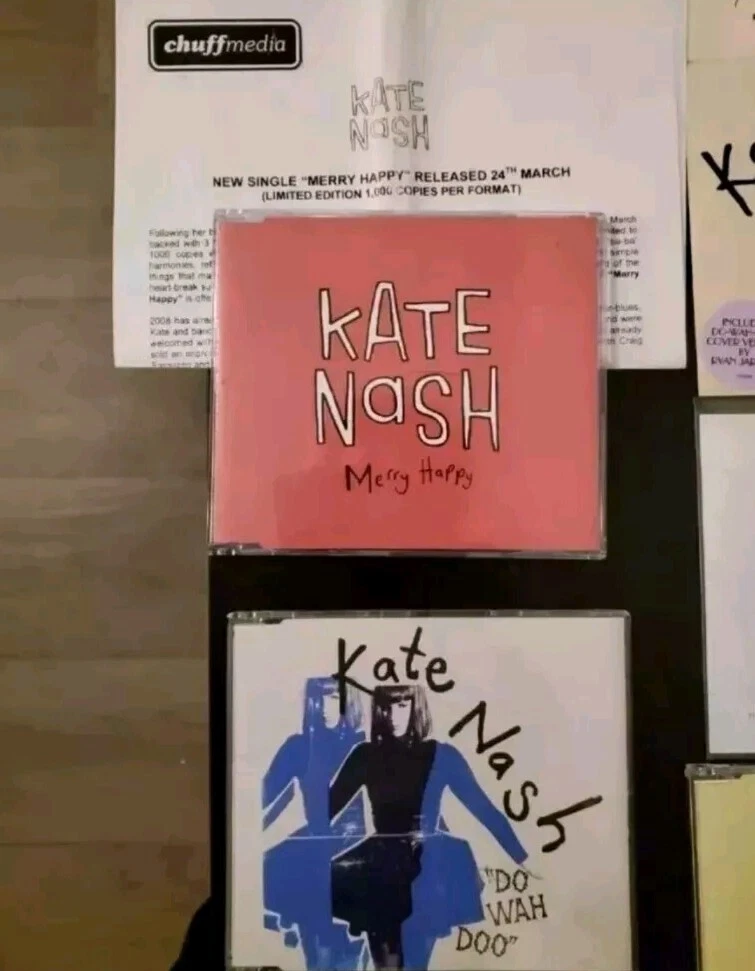 chuffmedia
KATE
NaSH
NEW SINGLE "MERRY HAPPY" RELEASED 24TH MARCH
(LIMITED EDITION 1,000 COPIES PER FORMAT)
Following her
backed with 3
1000 copies
harmonies,
things that
heart-break
Happy" is
2008 has
Kate and
welcomed
sold an
March
to
simple
of the
"Merry
were
already
Craig
KATE
NaSH
Merry Happy
Kate
Nash
"DO
WAH
DOO"
K
COVER
BY
RYAN